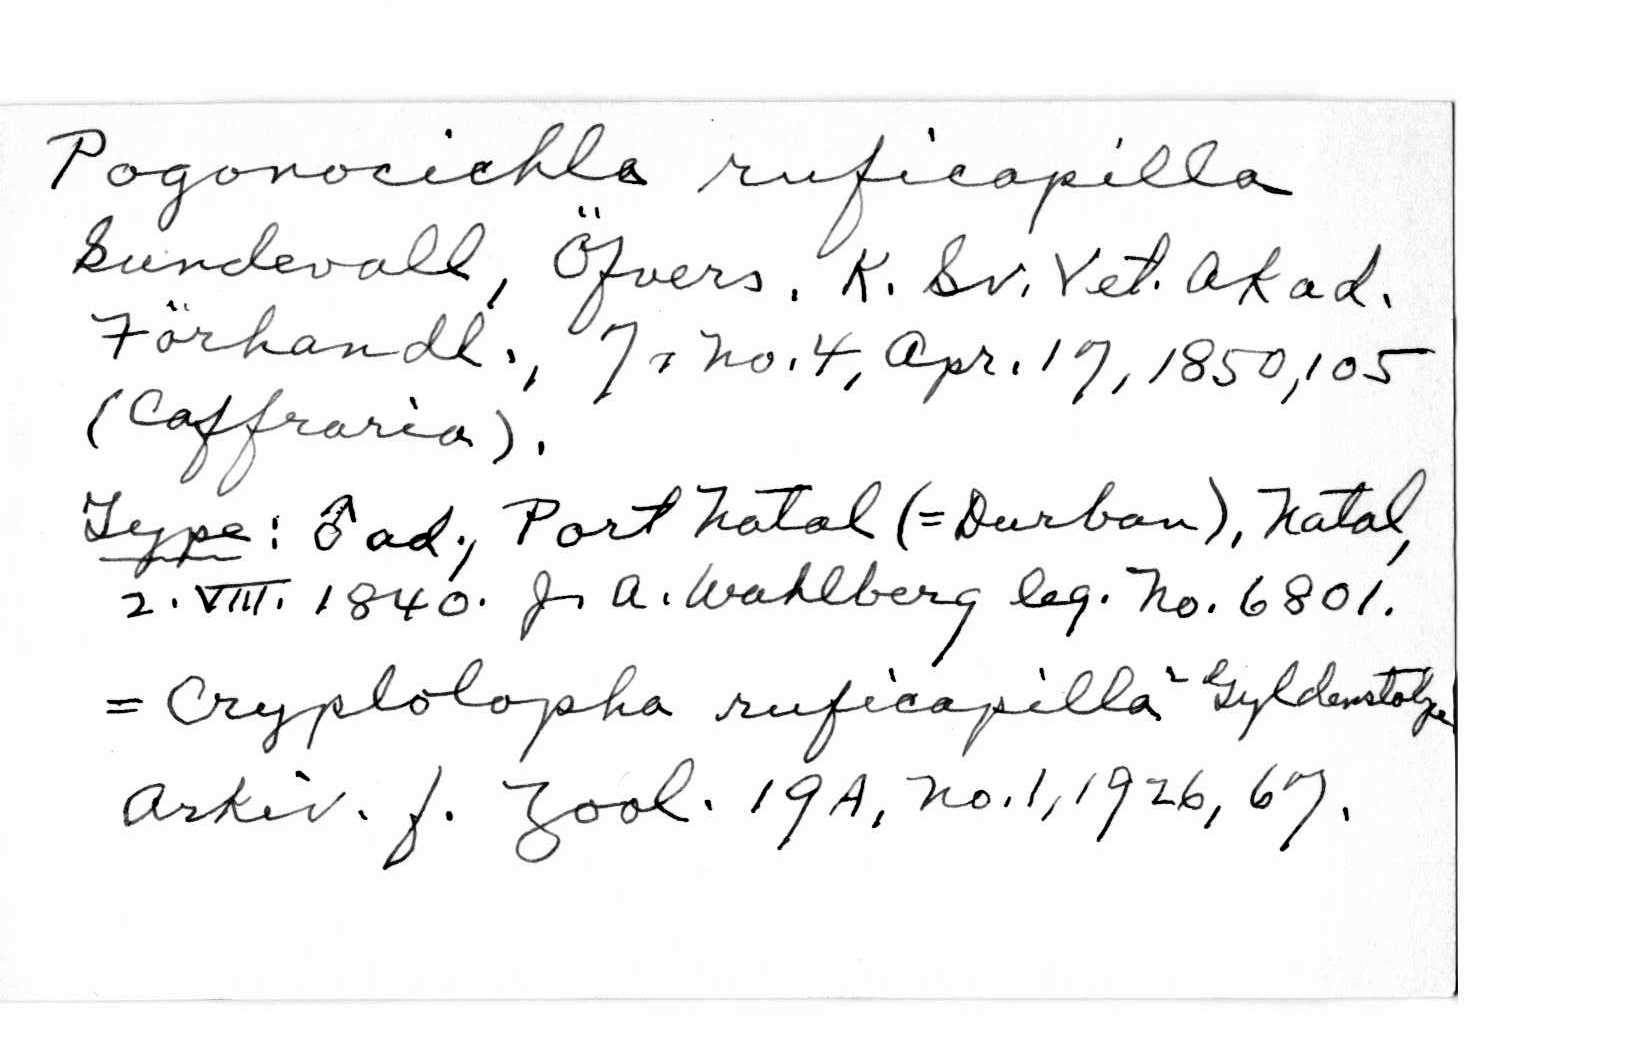 Pogonocichla ruficapilla
Sundevall, Öfvers. K. Sv. Vet. Akad.
Förhandl., 7, no. 4, Apr. 17, 1850, 105
(Caffraria).
Type: ♂ ad., Port Natal (=Durban), Natal,
2. VIII. 1840. J. A. Wahlberg leg. No. 6801.
= Cryptolopha ruficapilla - Gyldenstolpe
Arkiv. f. Zool. 19A, no. 1, 1926, 67.